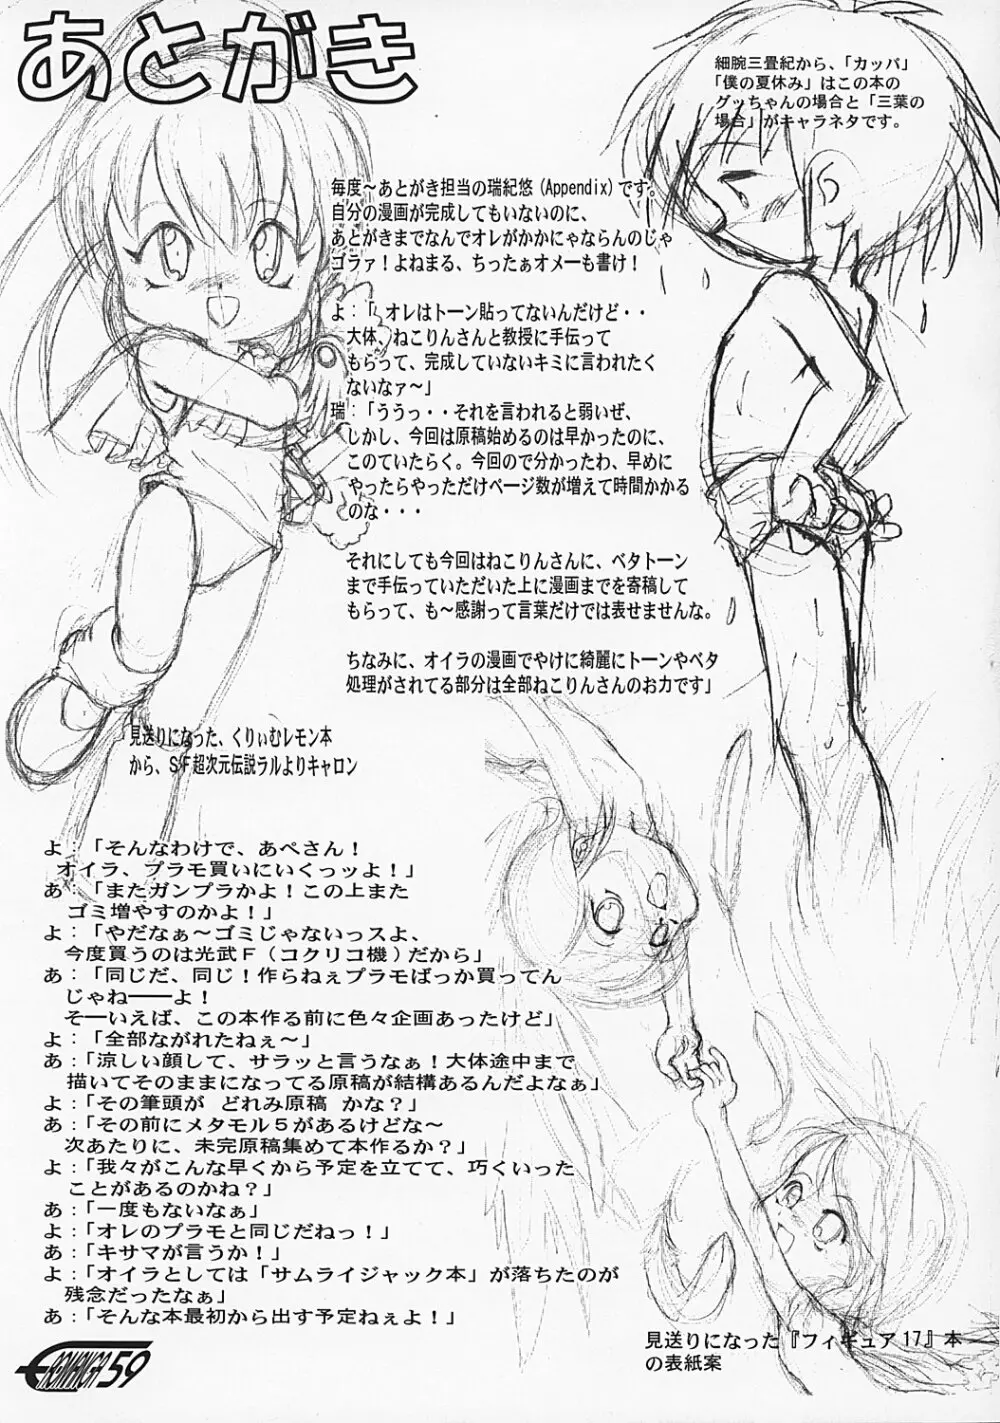 あとがき
細腕三畳紀から、「カッパ」
「僕の夏休み」はこの本の
グッちゃんの場合と「三葉の
場合」がキャラネタです。
毎度～あとがき担当の瑞紀悠(Appendix)です。
自分の漫画が完成してもいないのに、
あとがきまでなんでオレがかかにゃならんのじゃ
ゴラァ！よねまる、ちったぁオメーも書け！
よ：「 オレはトーン貼ってないんだけど・・
大体、ねこりんさんと教授に手伝って
もらって、完成していないキミに言われたく
ないなァ～」
瑞：「ううっ・・それを言われると弱いぜ、
しかし、今回は原稿始めるのは早かったのに、
このていたらく。今回ので分かったわ、早めに
やったらやっただけページ数が増えて時間かかる
のな・・・
それにしても今回はねこりんさんに、ベタトーン
まで手伝っていただいた上に漫画までを寄稿して
もらって、も～感謝って言葉だけでは表せませんな。
ちなみに、オイラの漫画でやけに綺麗にトーンやベタ
処理がされてる部分は全部ねこりんさんのお力です」
見送りになった、くりぃむレモン本
から、SF超次元伝説ラルよりキャロン
よ：「そんなわけで、あぺさん！
オイラ、プラモ買いにいくっッよ！」
あ：「またガンプラかよ！この上また
ゴミ増やすのかよ！」
よ：「やだなぁ～ゴミじゃないっスよ、
今度買うのは光武Ｆ（コクリコ機）だから」
あ：「同じだ、同じ！作らねぇプラモばっか買ってん
じゃね――よ！
そーいえば、この本作る前に色々企画あったけど」
よ：「全部ながれたねぇ～」
あ：「涼しい顔して、サラッと言うなぁ！大体途中まで
描いてそのままになってる原稿が結構あるんだよなぁ」
よ：「その筆頭が どれみ原稿 かな？」
あ：「その前にメタモル５があるけどな～
次あたりに、未完原稿集めて本作るか？」
よ：「我々がこんな早くから予定を立てて、巧くいった
ことがあるのかね？」
あ：「一度もないなぁ」
よ：「オレのプラモと同じだねっ！」
あ：「キサマが言うか！」
よ：「オイラとしては「サムライジャック本」が落ちたのが
残念だったなぁ」
あ：「そんな本最初から出す予定ねぇよ！」
見送りになった『フィギュア17』本
の表紙案
EROMANGA 59